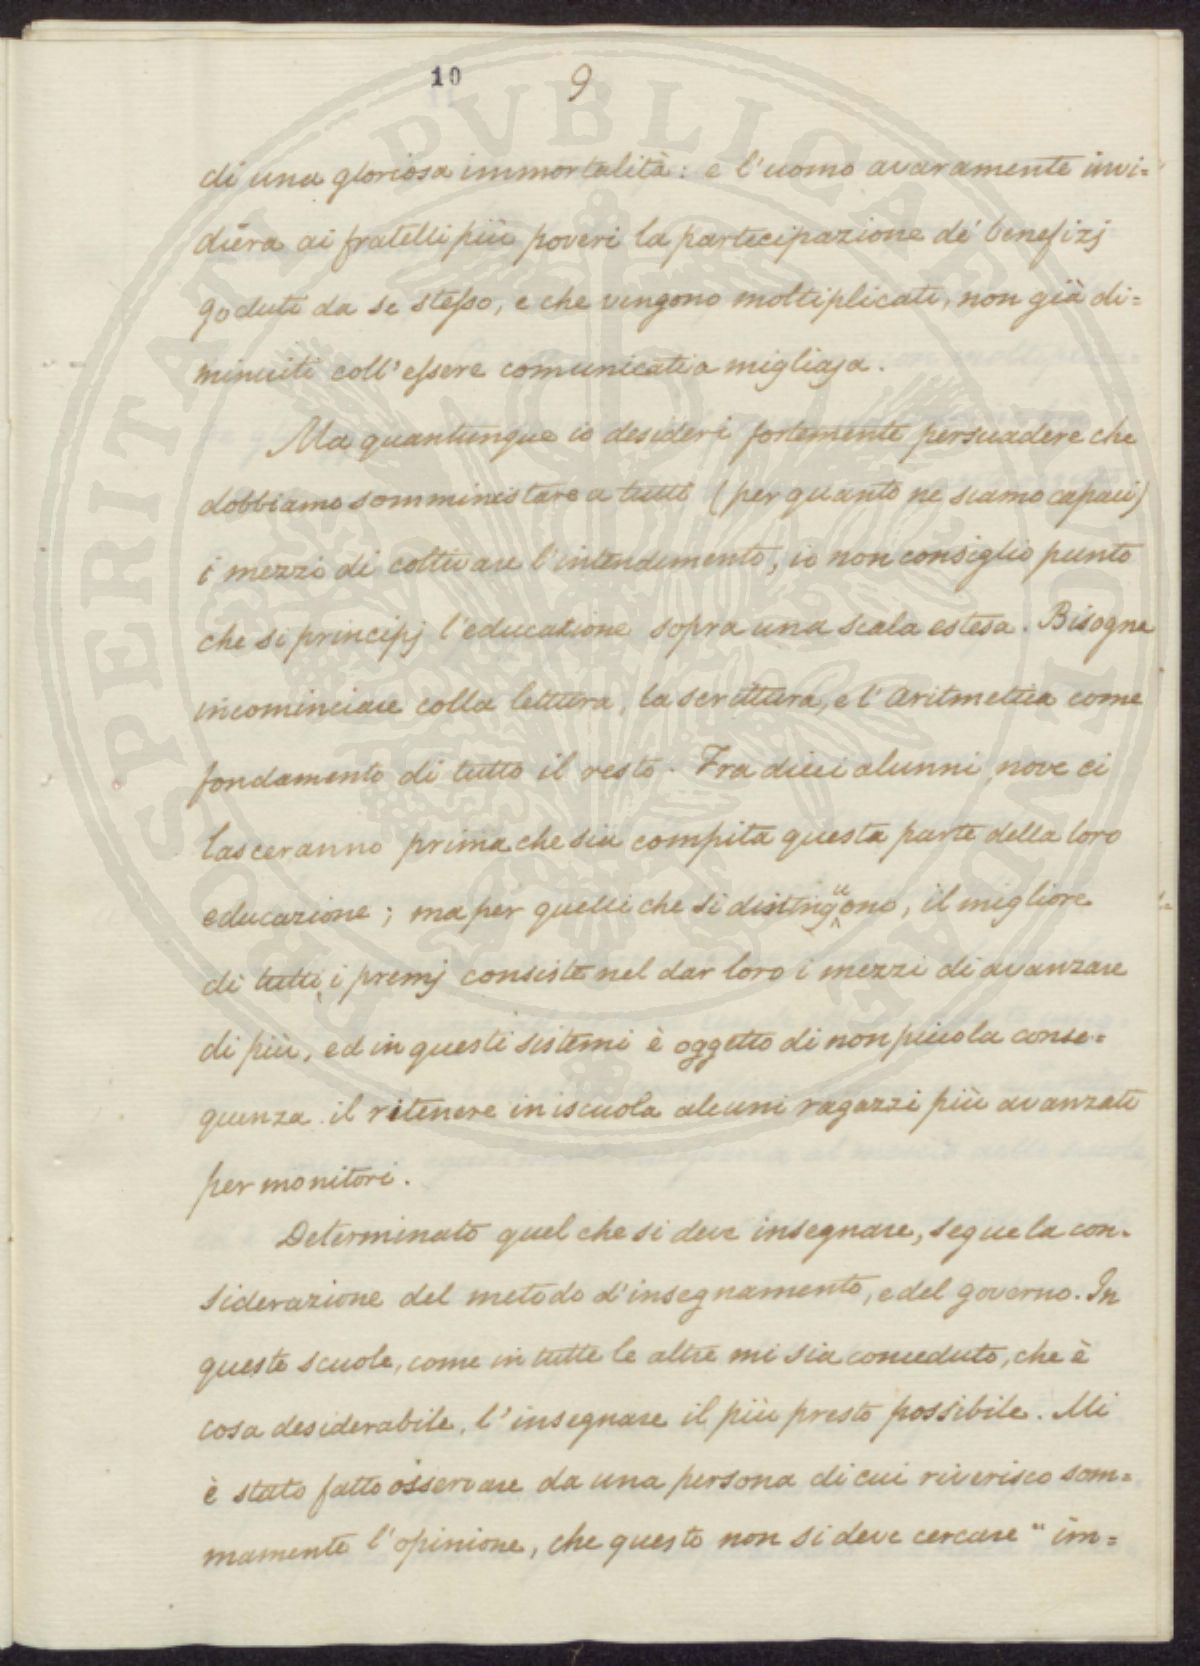 10 9
di una gloriosa immortalità: e l'uomo avaramente invi=
dierà ai fratelli più poveri la partecipazione de' benefizj
goduti da se stesso, e che vengono moltiplicati, non già di=
minuiti coll'essere comunicati a migliaja.
Ma quantunque io desideri fortemente persuadere che
dobbiamo somministrare a tutti (per quanto ne siamo capaci)
i mezzi di coltivare l'intendimento, io non consiglio punto
che si principj l'educazione sopra una scala estesa. Bisogna
incominciare colla lettura, la scrittura, e l'Aritmetica come
fondamento di tutto il resto. Fra dieci alunni nove ci
lasceranno prima che sia compita questa parte della loro
educazione; ma per quelli che si distinguono, il migliore
di tutti i premj consiste nel dar loro i mezzi di avanzare
di più, ed in questi sistemi è oggetto di non piccola conse=
guenza il ritenere in iscuola alcuni ragazzi più avanzati
per monitori.
Determinato quel che si deve insegnare, segue la con=
siderazione del metodo d'insegnamento, e del governo. In
queste scuole, come in tutte le altre mi sia conceduto, che è
cosa desiderabile, l'insegnare il più presto possibile. Mi
è stato fatto osservare da una persona di cui riverisco som=
mamente l'opinione, che questo non si deve cercare "im=
PROSPERITATI PVBLICAE